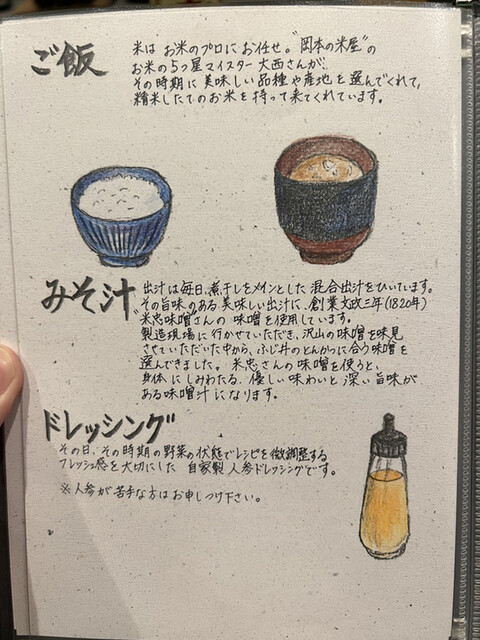 ご飯
米は お米のプロにお任せ。"岡本の米屋"の
お米の5つ星マイスター 大西さんが、
その時期に 美味しい品種や産地を選んでくれて、
精米したてのお米を持って来てくれています。
みそ汁
出汁は毎日、煮干しをメインとした 混合出汁をひいています。
その旨味のある 美味しい出汁に、創業文政三年(1820年)
"米忠味噌"さんの 味噌を使用しています。
製造現場に行かせていただき、沢山の味噌を味見
させていただいた中から、ふじ井のとんかつに合う味噌を
選んできました。 米忠さんの味噌を使うと、
身体にしみわたる、優しい味わいと深い旨味が
ある味噌汁になります。
ドレッシング
その日、その時期の野菜の状態でレシピを微調整する
フレッシュ感を大切にした 自家製人参ドレッシングです。
※人参が苦手な方はお申しつけ下さい。